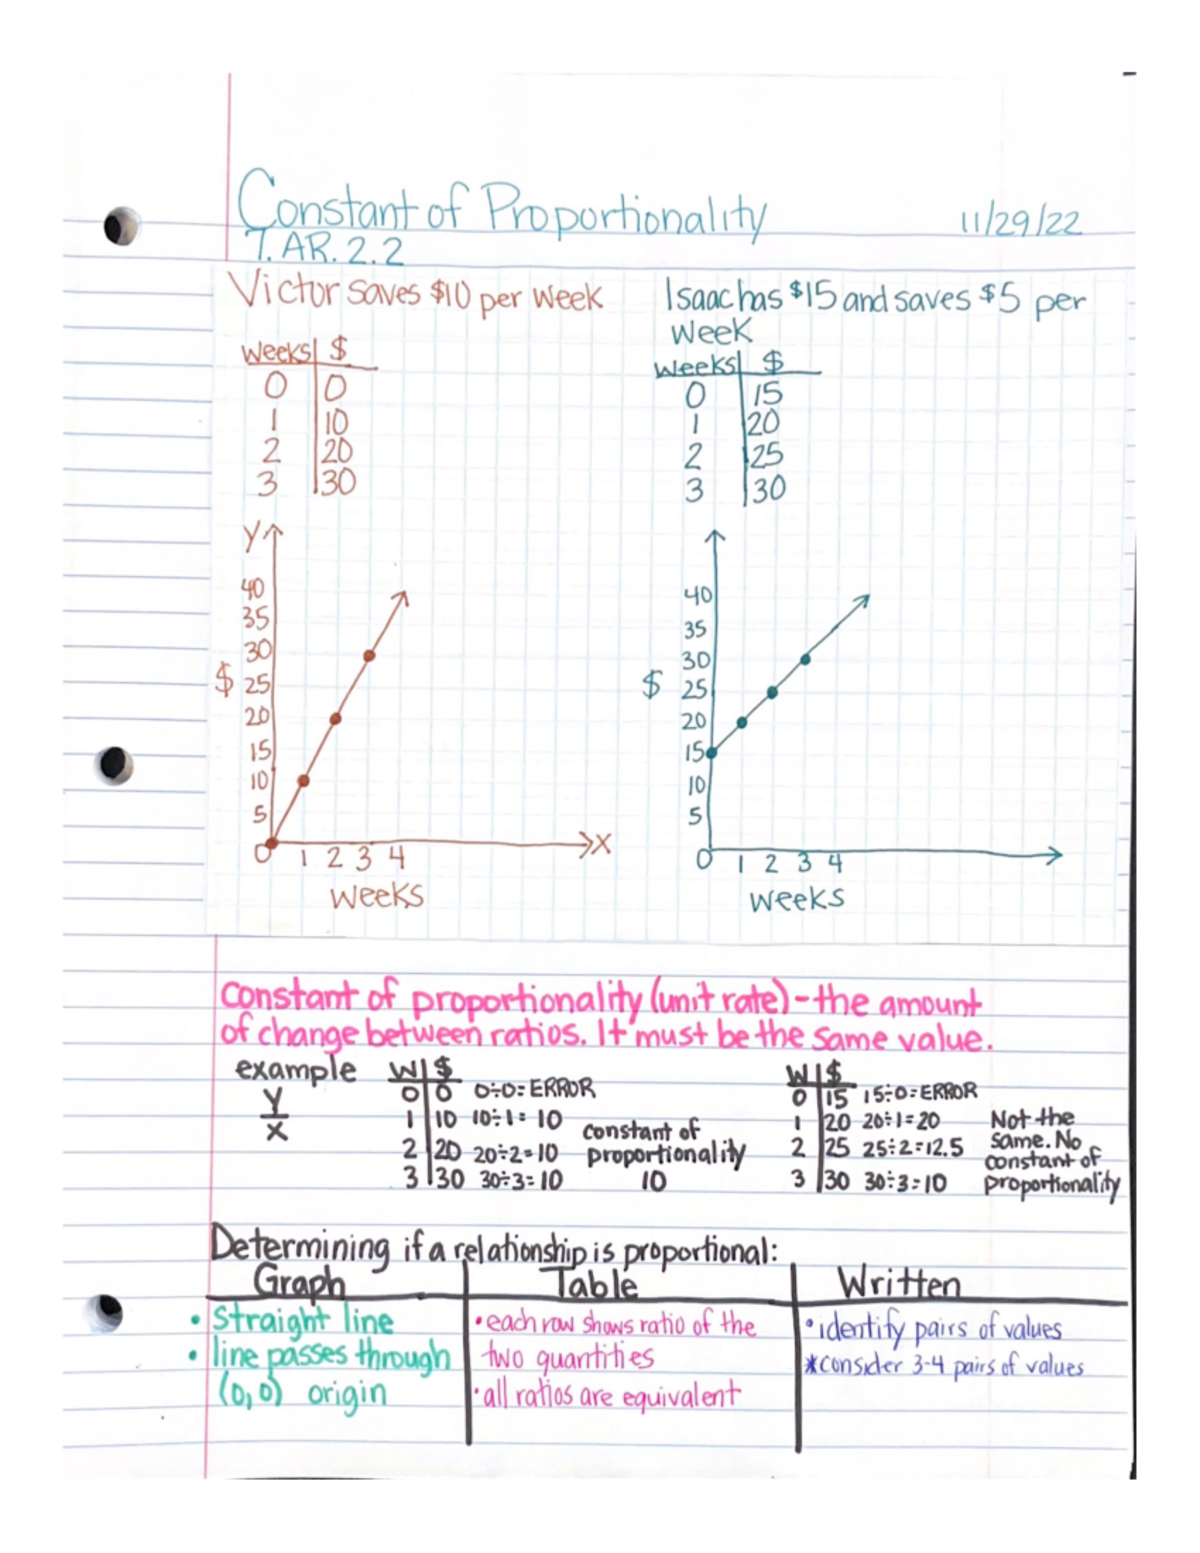 Constant of Proportionality 11/29/22
7.AR.2.2
Victor saves $10 per week
Weeks $
0 0
1 10
2 20
3 30
Y
40
35
30
$ 25
20
15
10
5
0 1 2 3 4 X
weeks
Isaac has $15 and saves $5 per
week
Weeks $
0 15
1 20
2 25
3 30
40
35
30
$ 25
20
15
10
5
0 1 2 3 4
weeks
Constant of proportionality (unit rate) - the amount
of change between ratios. It must be the same value.
example
Y
X
W $
0 0 0÷0=ERROR
1 10 10÷1=10
2 20 20÷2=10
3 30 30÷3=10
constant of
proportionality
10
W $
0 15 15÷0=ERROR
1 20 20÷1=20
2 25 25÷2=12.5
3 30 30÷3=10
Not the
same. No
constant of
proportionality
Determining if a relationship is proportional:
Graph
• Straight line
• line passes through
(0,0) origin
Table
• each row shows ratio of the
two quantities
• all ratios are equivalent
Written
• identify pairs of values
*consider 3-4 pairs of values